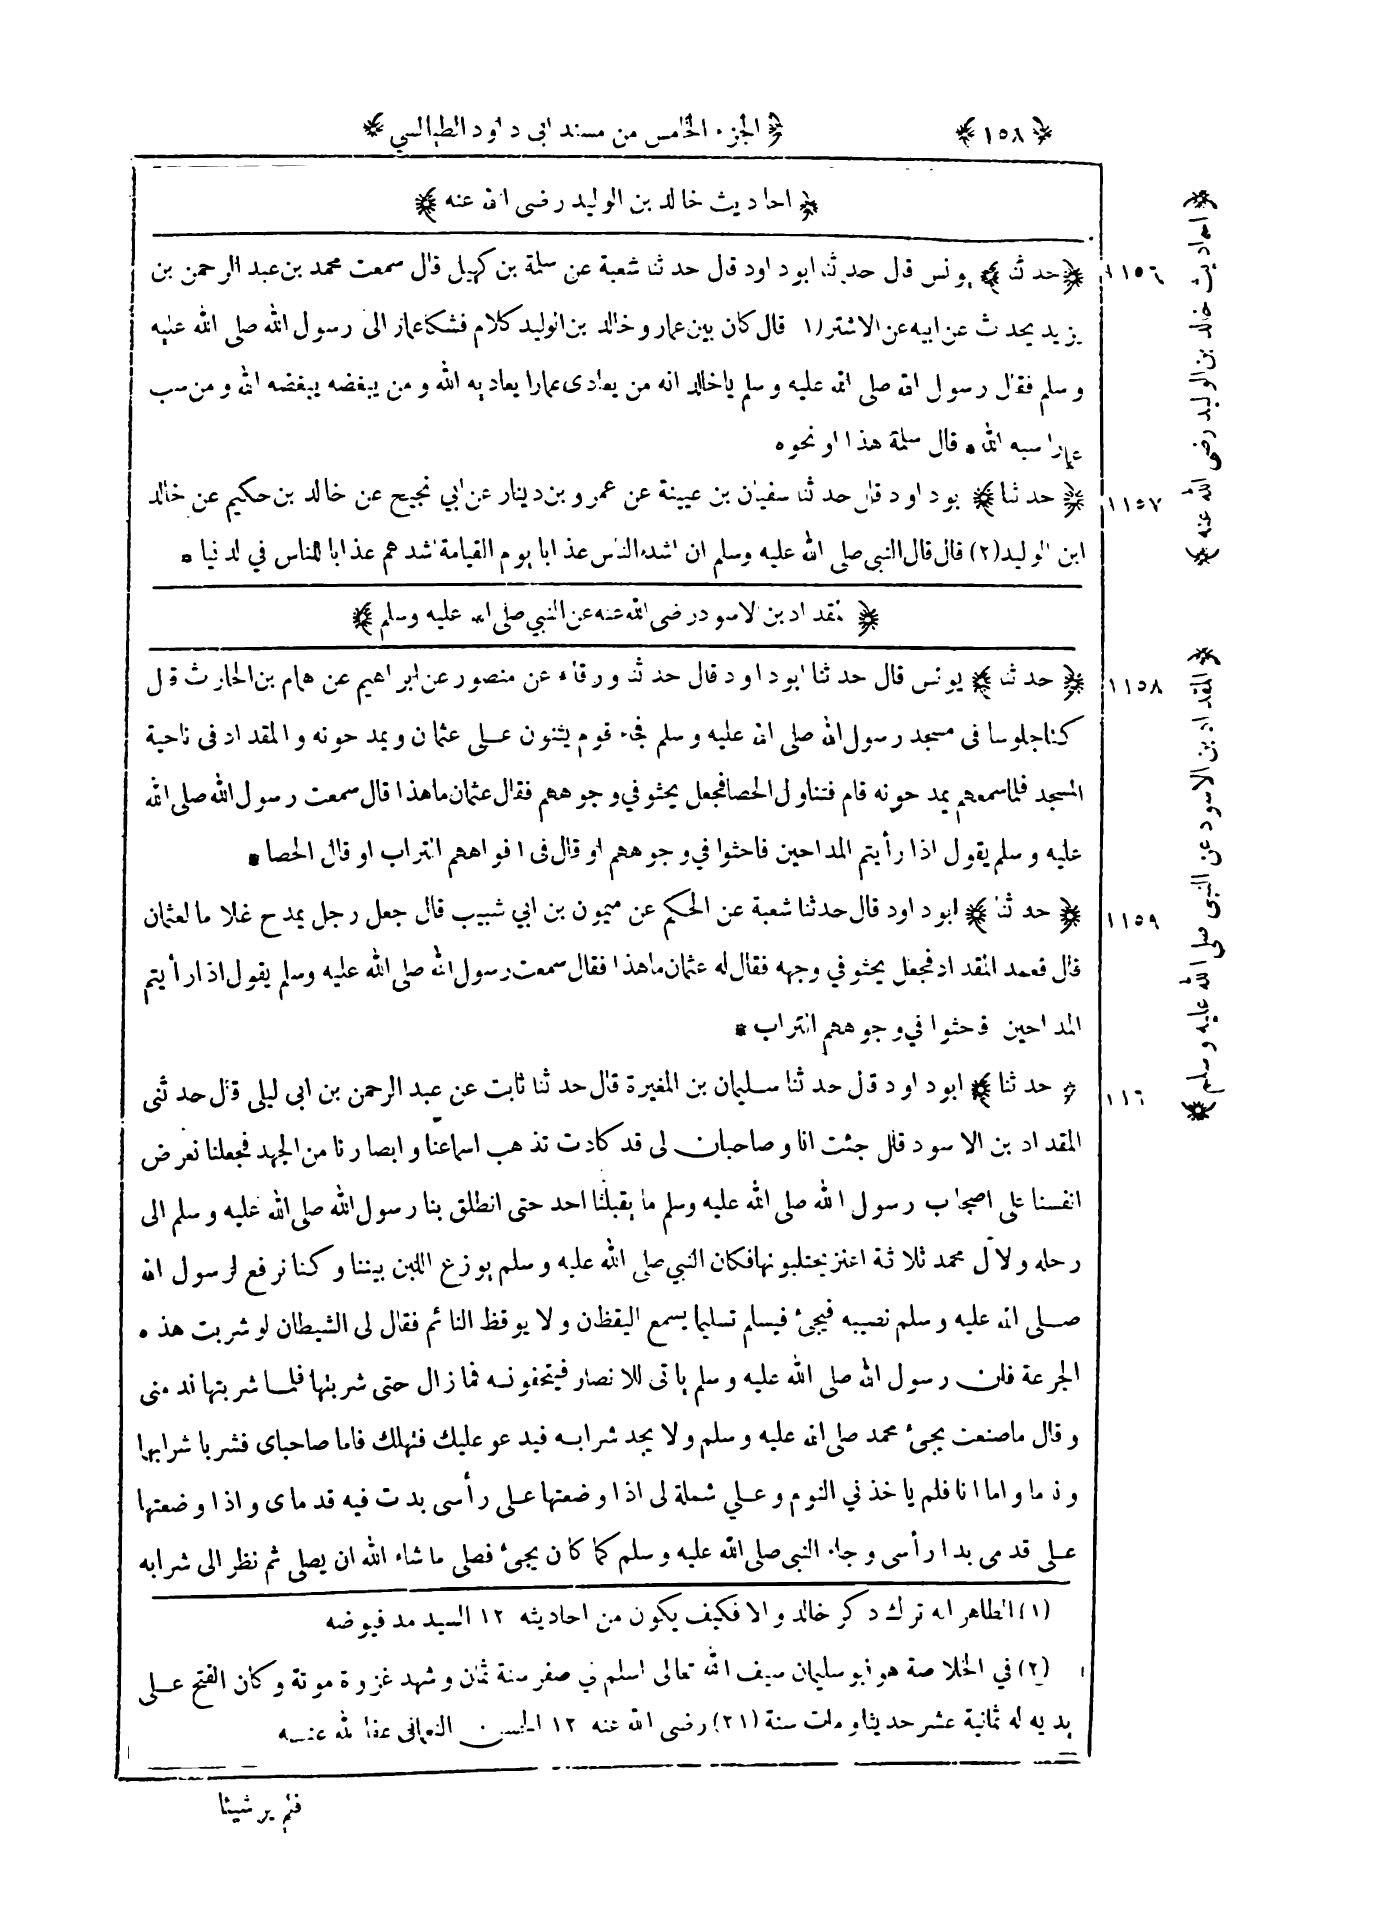 ﴿ ١٥٨ ﴾
﴿ الجزء الخامس من مسند ابى داود الطيالسي ﴾
﴿ احاديث خالد بن الوليد رضى الله عنه ﴾
١١٥٦ ﴿ حدثنا ﴾ يونس قال حدثنا ابوداود قال حدثنا شعبة عن سلمة بن كهيل قال سمعت محمد بن عبد الرحمن بن
يزيد يحدث عن ابيه عن الاشتر (١ قال كان بين عمار وخالد بن الوليد كلام فشكا عمار الى رسول الله صلى الله عليه
وسلم فقال رسول الله صلى الله عليه وسلم ياخالد انه من يعادى عمارا يعاديه الله ومن يبغضه يبغضه الله ومن سب
عمارا سبه الله * قال سلمة هذا او نحوه
١١٥٧ ﴿ حدثنا ﴾ بوداود قال حدثنا سفيان بن عيينة عن عمرو بن دينار عن ابي نجيح عن خالد بن حكيم عن خالد
ابن الوليد (٢) قال قال النبي صلى الله عليه وسلم ان اشد الناس عذابا يوم القيامة اشدهم عذابا للناس في لدنيا *
﴿ المقداد بن الاسود رضى الله عنه عن النبي صلى الله عليه وسلم ﴾
١١٥٨ ﴿ حدثنا ﴾ يونس قال حدثنا ابوداود قال حدثنا ورقاء عن منصور عن ابراهيم عن همام بن الحارث قال
كنا جلوسا فى مسجد رسول الله صلى الله عليه وسلم فجاء قوم يثنون على عثمان ويمدحونه والمقداد فى ناحية
المسجد فلما سمعهم يمدحونه قام فتناول الحصا فجعل يحثو في وجوههم فقال عثمان ما هذا قال سمعت رسول الله صلى الله
عليه وسلم يقول اذا رأيتم المداحين فاحثوا في وجوههم او قال فى افواههم التراب او قال الحصا *
١١٥٩ ﴿ حدثنا ﴾ ابوداود قال حدثنا شعبة عن الحكم عن ميمون بن ابي شبيب قال جعل رجل يمدح غلاما لعثمان
قال فعمد المقداد فجعل يحثو في وجهه فقال له عثمان ما هذا فقال سمعت رسول الله صلى الله عليه وسلم يقول اذا رأيتم
المداحين فاحثوا في وجوههم التراب *
١١٦ ﴿ حدثنا ﴾ ابوداود قال حدثنا سليمان بن المغيرة قال حدثنا ثابت عن عبد الرحمن بن ابى ليلى قال حدثنى
المقداد بن الاسود قال جئت انا وصاحبان لى قد كادت تذهب اسماعنا وابصارنا من الجهد فجعلنا نعرض
انفسنا على اصحاب رسول الله صلى الله عليه وسلم ما يقبلنا احد حتى انطلق بنا رسول الله صلى الله عليه وسلم الى
رحله ولآل محمد ثلاثة اعنز يحتلبونها فكان النبي صلى الله عليه وسلم يوزع اللبن بيننا وكنا نرفع لرسول الله
صلى الله عليه وسلم نصيبه فيجئ فيسلم تسليما يسمع اليقظان ولا يوقظ النائم فقال لى الشيطان لو شربت هذه
الجرعة فان رسول الله صلى الله عليه وسلم ياتى للانصار فيتحفونه فما زال حتى شربتها فلما شربتها ندمنى
وقال ما صنعت يجئ محمد صلى الله عليه وسلم ولا يجد شرابه فيدعو عليك فتهلك فاما صاحباى فشربا شرابهما
وناما واما انا فلم ياخذني النوم وعلي شملة لى اذا وضعتها على رأسى بدت فيه قدماى واذا وضعتها
على قدمى بدا رأسى وجاء النبى صلى الله عليه وسلم كما كان يجئ فصلى ما شاء الله ان يصلى ثم نظر الى شرابه
(١) الظاهر انه ترك ذكر خالد والا فكيف يكون من احاديثه ١٢ السيد مد فيوضه
(٢) في الخلاصة هو ابو سليمان سيف الله تعالى اسلم في صفر سنة ثمان وشهد غزوة موتة وكان الفتح على
يديه له ثمانية عشر حديثا ومات سنة (٢١) رضى الله عنه ١٢ الحسن النعمانى عفا الله عنه
فلم ير شيئا
﴿ احاديث خالد بن الوليد رضى الله عنه ﴾
﴿ المقداد بن الاسود عن النبى صلى الله عليه وسلم ﴾